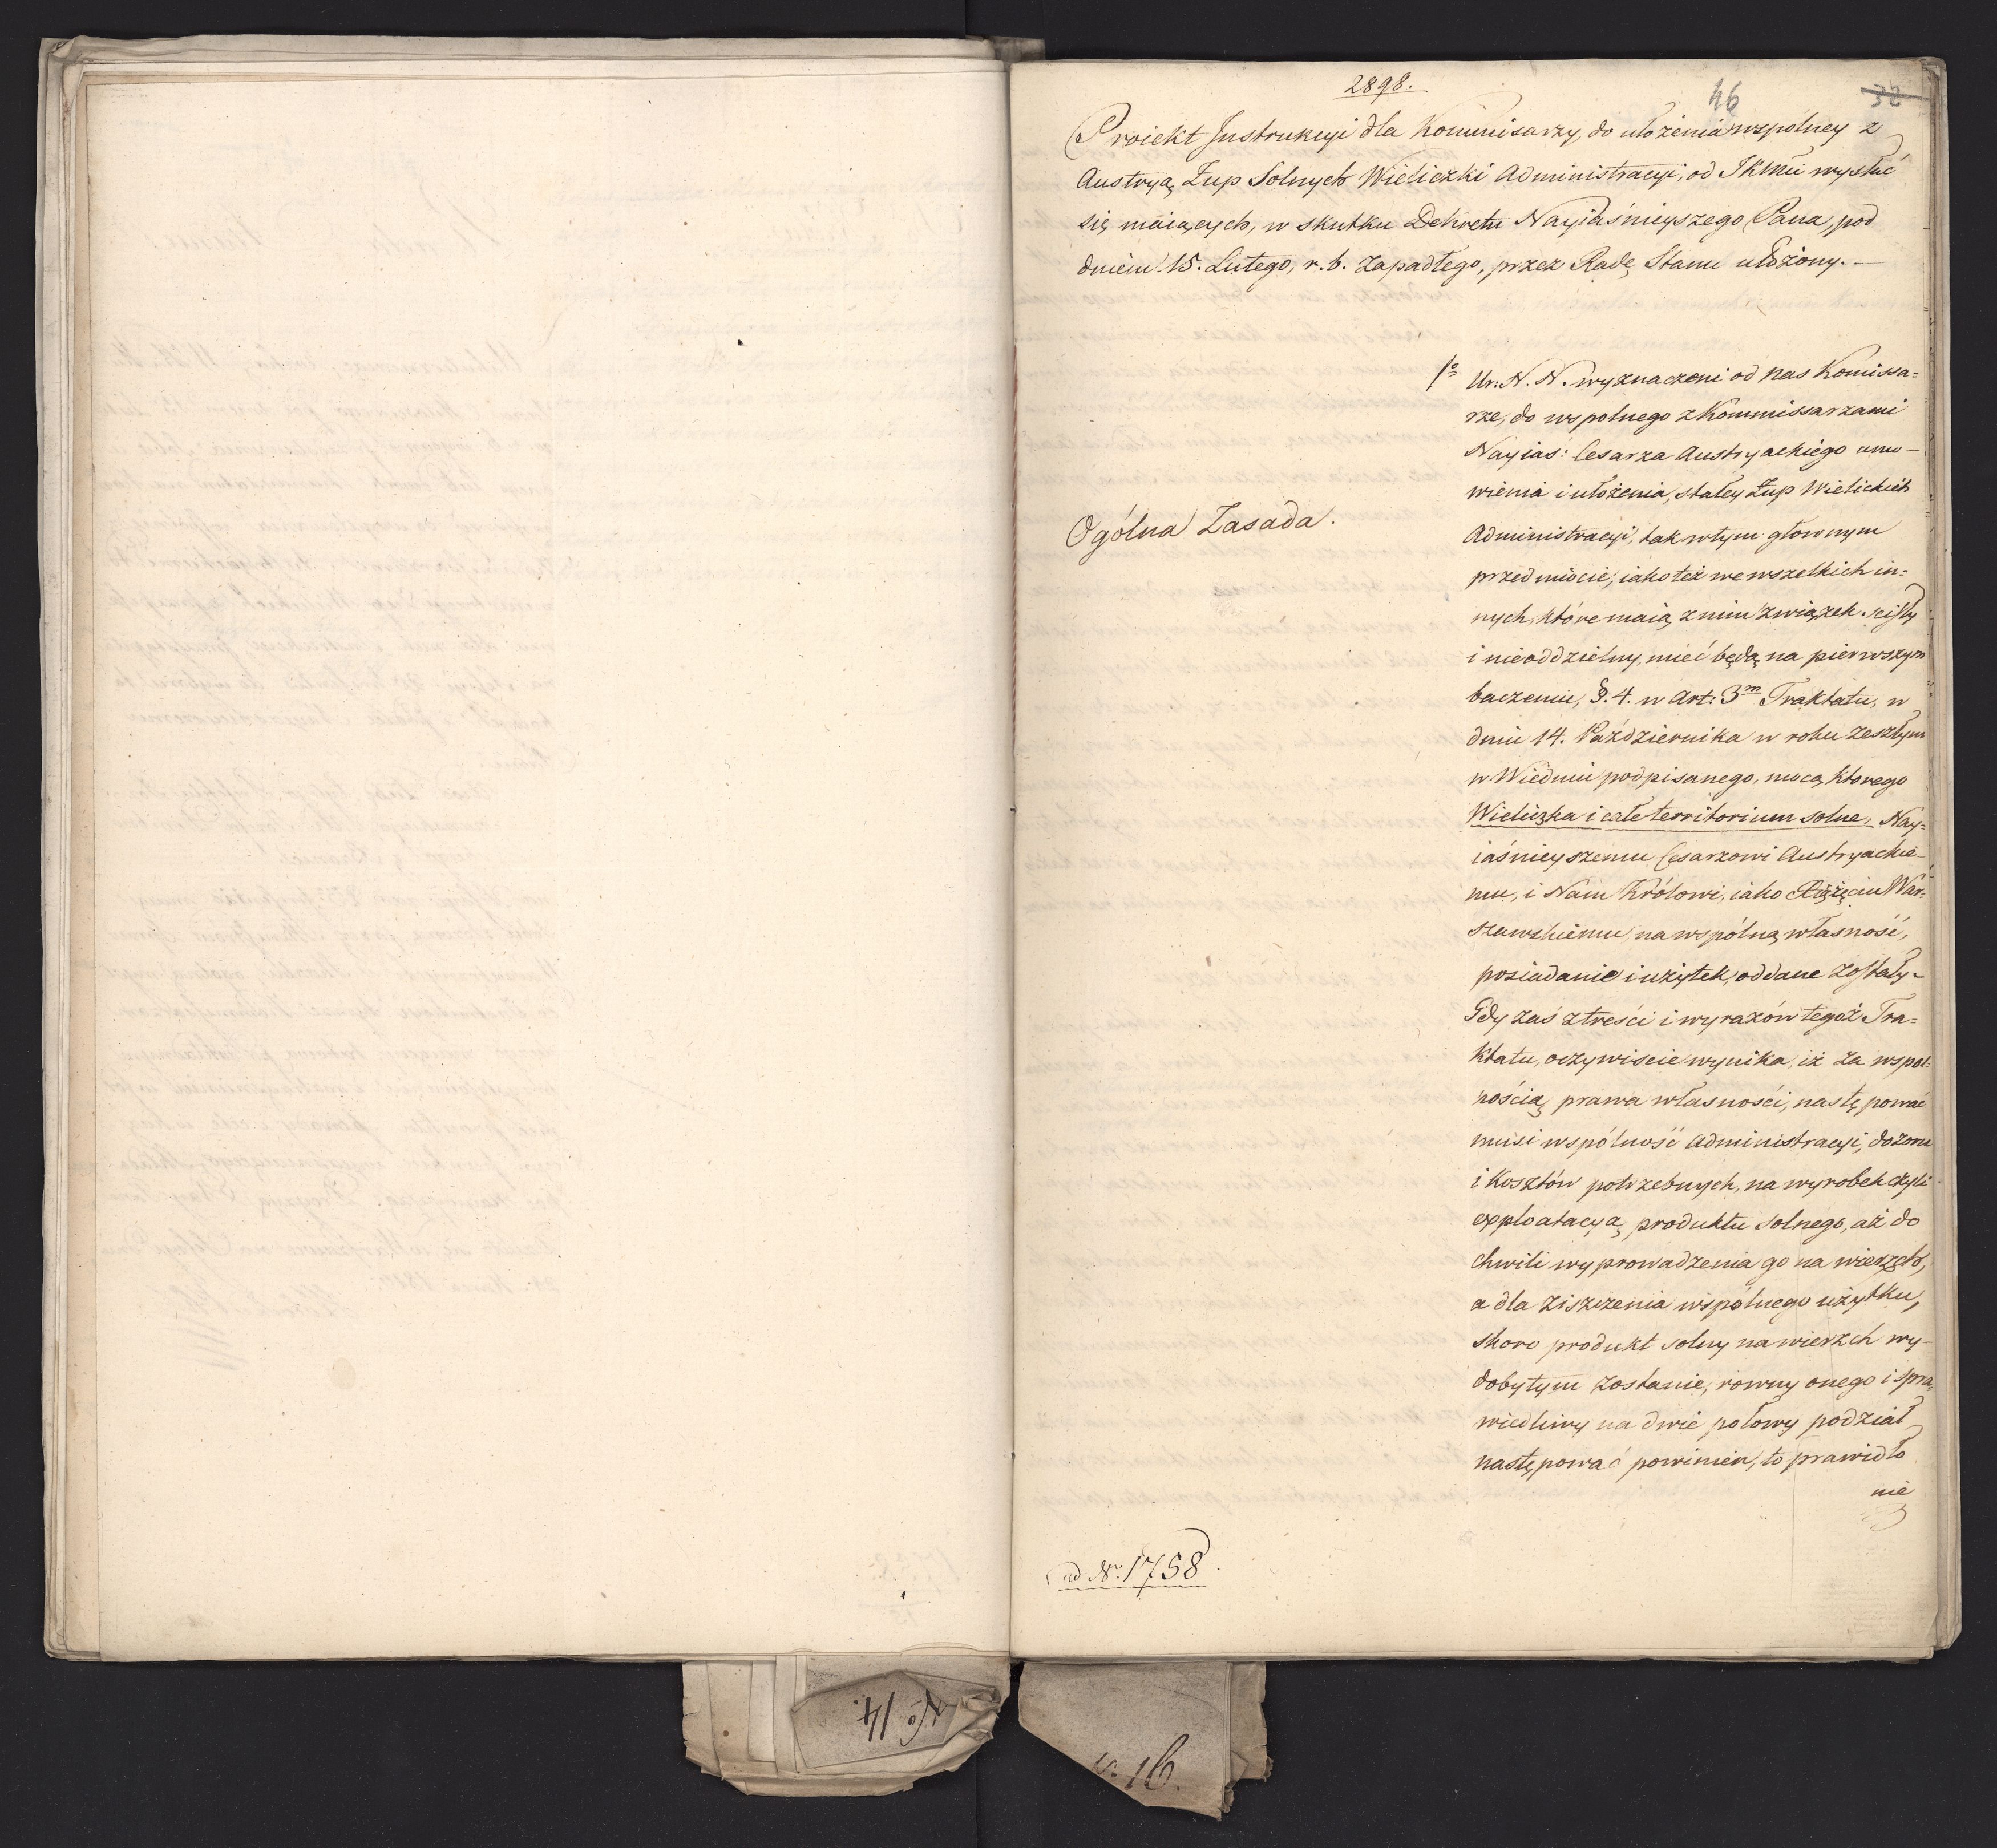 2898.
46
32
Proiekt Instrukcyi dla Kommisarzy, do ułożenia wspólney z
Austryą Żup Solnych Wieliczki Administracyi, od JKMci wysłać
się maiących, w skutku Dekretu Nayiaśnieyszego Pana, pod
dniem 15. Lutego, r. b. zapadłego, przez Radę Stanu ułożony. —
1º Ur: N. N. wyznaczeni od nas Komissa=
rze, do wspolnego z Kommissarzami
Nayiaś: Cesarza Austryackiego umo-
wienia i ułożenia, stałey Żup Wielickich
Ogólna Zasada.
Administracyi, tak w tym głownym
przedmiocie, iako też we wszelkich in=
nych, które maią z nim związek scisły
i nieoddzielny, mieć będą na pierwszym
baczeniu, §. 4. w Art: 3m Traktatu, w
dniu 14. Października w roku zeszłym
w Wiedniu podpisanego, mocą ktorego
Wieliczka i całe territorium solne, Nay=
iaśnieyszemu Cesarzowi Austryackie-
mu, i Nam Królowi, iako Xiążęciu War=
szawskiemu, na wspólną własność,
posiadanie i użytek, oddane zostały.
Gdy zaś z treści i wyrazów tegoż Tra=
ktatu, oczywiscie wynika, iż za wspól=
nością prawa własności, następować
musi wspólność Administracyi, dozoru
i kosztów potrzebnych, na wyrobek czyli
exploatacyą produktu solnego, aż do
chwili wyprowadzenia go na wierzch,
a dla ziszczenia wspólnego użytku,
skoro produkt solny na wierzch wy-
dobytym zostanie, rowny onego i spra=
wiedliwy na dwie połowy podział
następować powinien, to prawidło
nie
ad Nr. 1758.
No 14.
16.